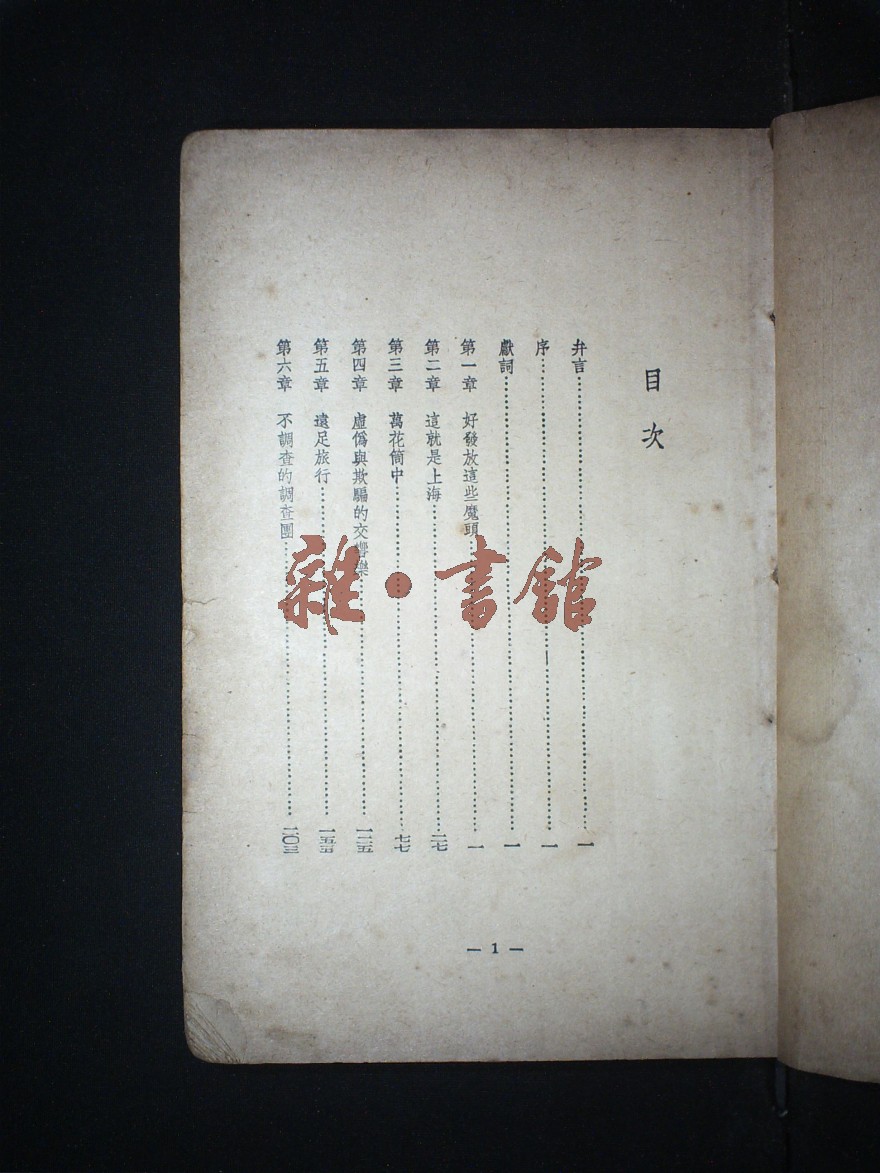 目次
弁言 一
序 一
獻詞 一
第一章 好發放這些魔頭 一
第二章 這就是上海 二七
第三章 萬花筒中 七七
第四章 虛僞與欺騙的交響樂 一二五
第五章 遠足旅行 一五五
第六章 不調查的調查團 二〇三
— 1 —
雜·書館